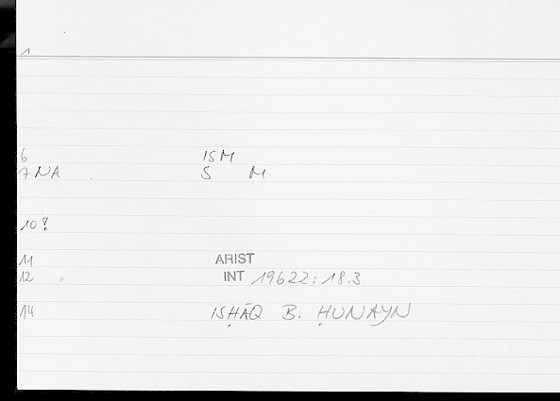 1
6 ISM
7 NA S M
10?
11 ARIST
12 INT 19622:18.3
14 ISḤĀQ B. ḤUNAYN